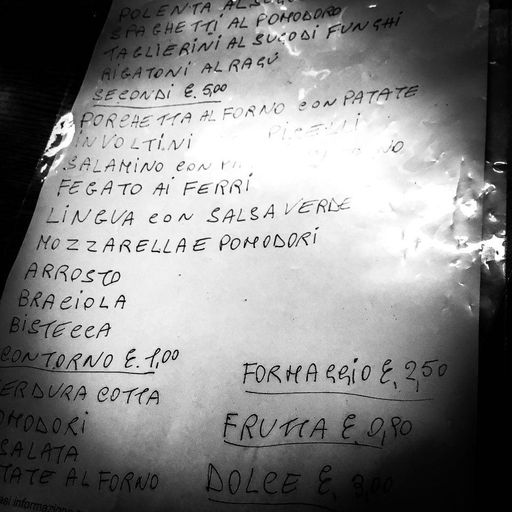 POLENTA AL
SPAGHETTI AL POMODORO
TAGLIERINI AL SUGO DI FUNGHI
RIGATONI AL RAGÚ
SECONDI €. 5,00
PORCHETTA AL FORNO CON PATATE
INVOLTINI PISELLI
SALAMINO CON
FEGATO AI FERRI
LINGUA CON SALSA VERDE
MOZZARELLA E POMODORI
ARROSTO
BRACIOLA
BISTECCA
CONTORNO €. 1,00
ERDURA COTTA
OMODORI
SALATA
TATE AL FORNO
FORMAGGIO €. 2,50
FRUTTA €. 0,90
DOLCE €. 3,00